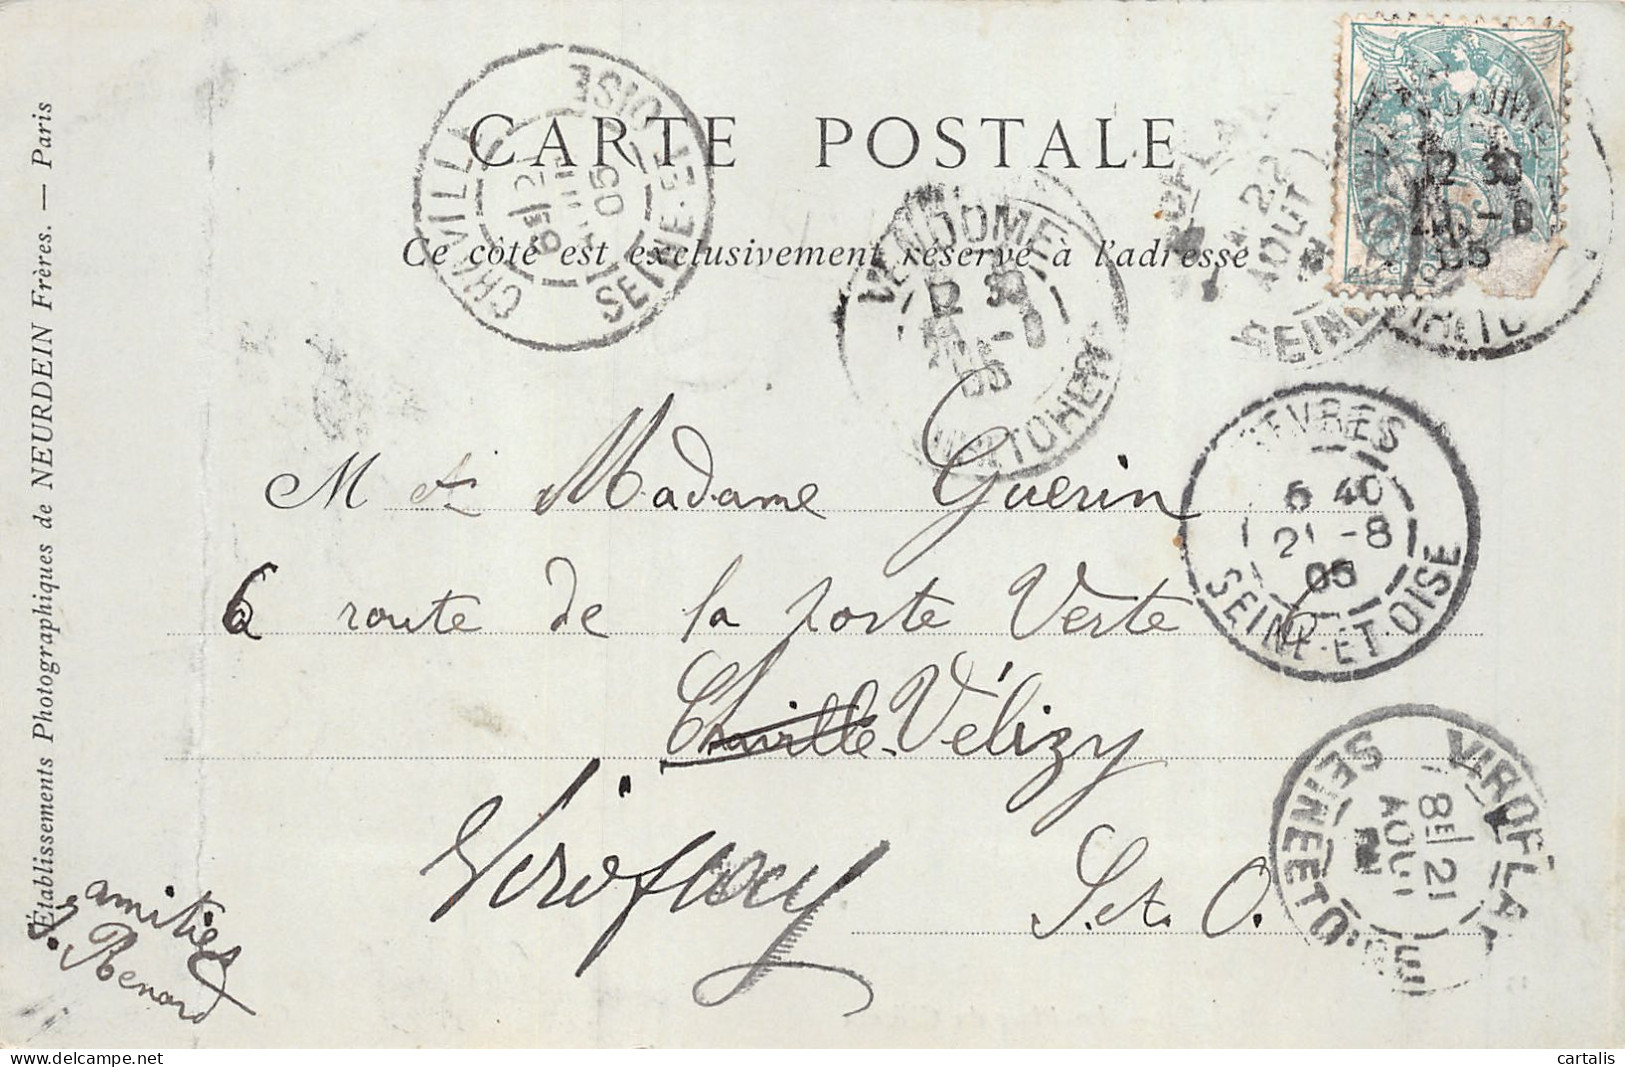 CARTE POSTALE
Ce côté est exclusivement réservé à l'adresse
Établissements Photographiques de NEURDEIN Frères. — Paris
CHAVILLE
SEINE-ET-OISE
05
VENDOME
12 30
-8
05
22
AOUT
SEINE
12 30
-8
05
M et Madame Guerin
6 route de la porte Verte
Chaville Vélizy
Viroflay
S. et. O.
SEVRES
6 40
21 -8
05
SEINE-ET-OISE
VIROFLAY
8E/21
AOUT
SEINE ET OISE
amitiés
Renard
cartalis